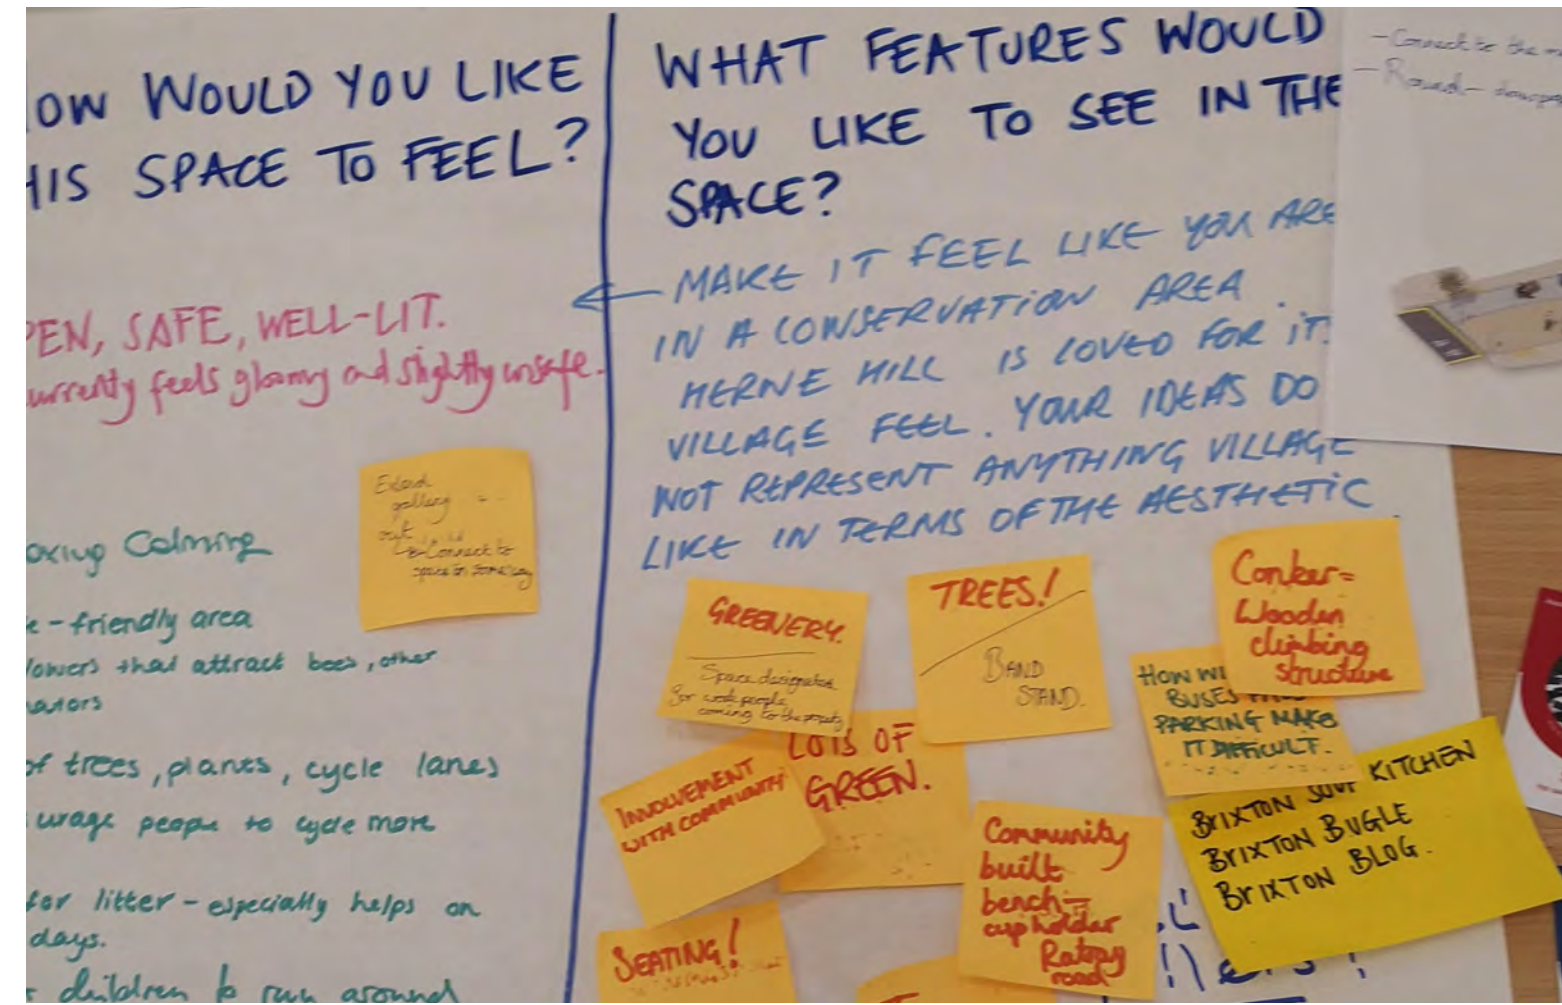 OW WOULD YOU LIKE
HIS SPACE TO FEEL?
PEN, SAFE, WELL-LIT.
urrently feels gloomy and slightly unsafe.
Extend
gallery
out
Connect to
space in some way
axing Calming
e-friendly area
lowers that attract bees, other
nators
of trees, plants, cycle lanes
urage people to cycle more
for litter - especially helps on
days.
children to run around
WHAT FEATURES WOULD
YOU LIKE TO SEE IN THE
SPACE?
← MAKE IT FEEL LIKE YOU ARE
IN A CONSERVATION AREA.
HERNE HILL IS LOVED FOR IT.
VILLAGE FEEL. YOUR IDEAS DO
NOT REPRESENT ANYTHING VILLAGE
LIKE IN TERMS OF THE AESTHETIC
GREENERY.
Space designated
for work people
coming to the property
TREES!
BAND
STAND.
Conker=
Wooden
climbing
structure
HOW WI
BUSES
PARKING MAKE
IT DIFFICULT.
LOTS OF
GREEN.
INVOLVEMENT
WITH COMMUNITY
BRIXTON SOUP KITCHEN
BRIXTON BUGLE
BRIXTON BLOG.
Community
built
bench=
cup holder
road
SEATING!
- Connect to the
- Round -